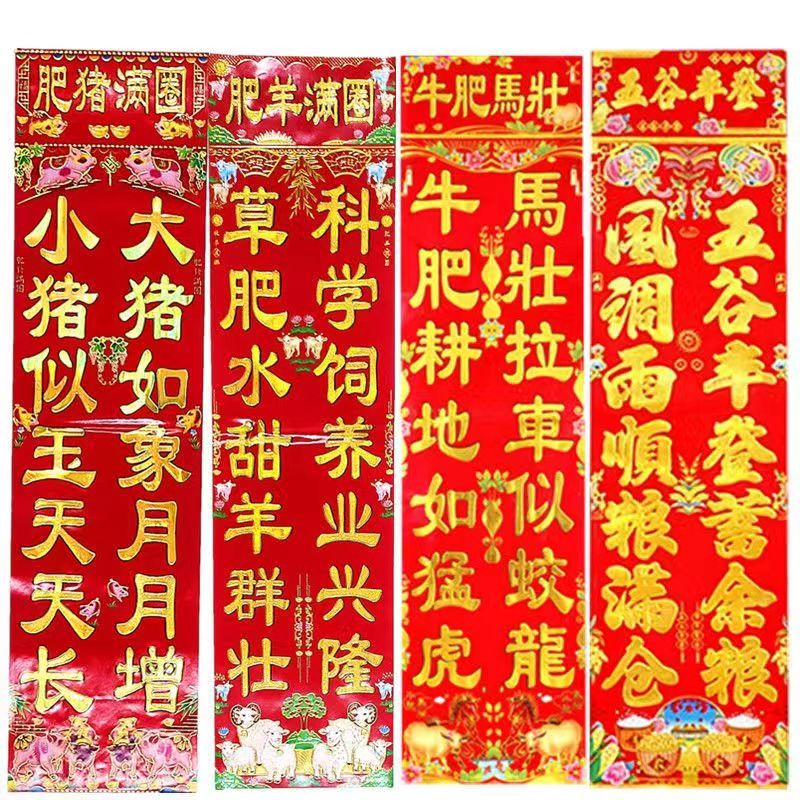 肥猪满圈
大猪如象月月增
小猪似玉天天长
肥羊满圈
科学饲养业兴隆
草肥水甜羊群壮
牛肥馬壯
馬壯拉車似蛟龍
牛肥耕地如猛虎
五谷丰登
五谷丰登蓄余粮
风调雨順粮满仓